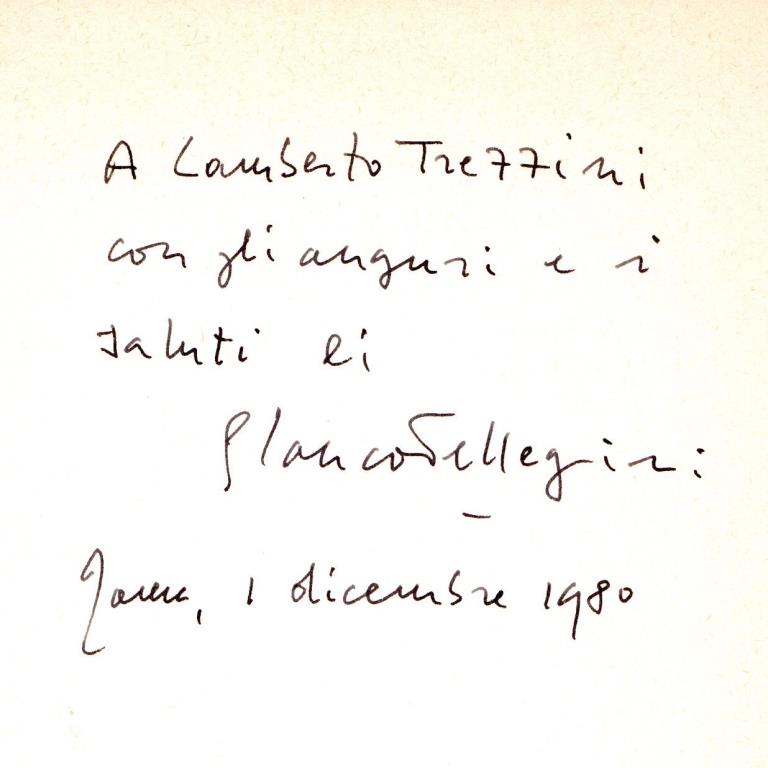 A Lamberto Trezzini
con gli auguri e i
saluti di
Glauco Pellegrini
Roma, 1 dicembre 1980